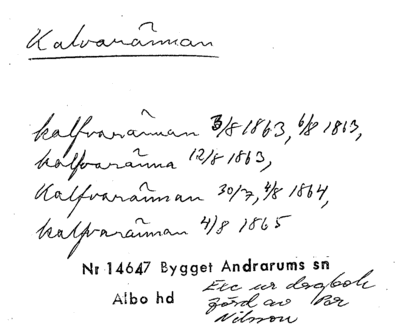 Kalvarännan
kalfvarännan 3/8 1863, 6/8 1863,
kalfvaränna 12/8 1863,
Kalfvarännan 30/7, 4/8 1864,
kalfvarännan 4/8 1865
Nr 14647 Bygget Andrarums sn
Albo hd
Exc ur dagbok
förd av Per
Nilsson